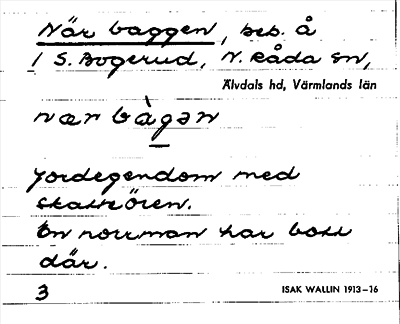 När baggen, bes. å
1 S. Bogerud, N. Råda sn,
Älvdals hd, Värmlands län
nær bàgən
Jordegendom med
skattören.
En norrman har bott
där.
3
ISAK WALLIN 1913–16